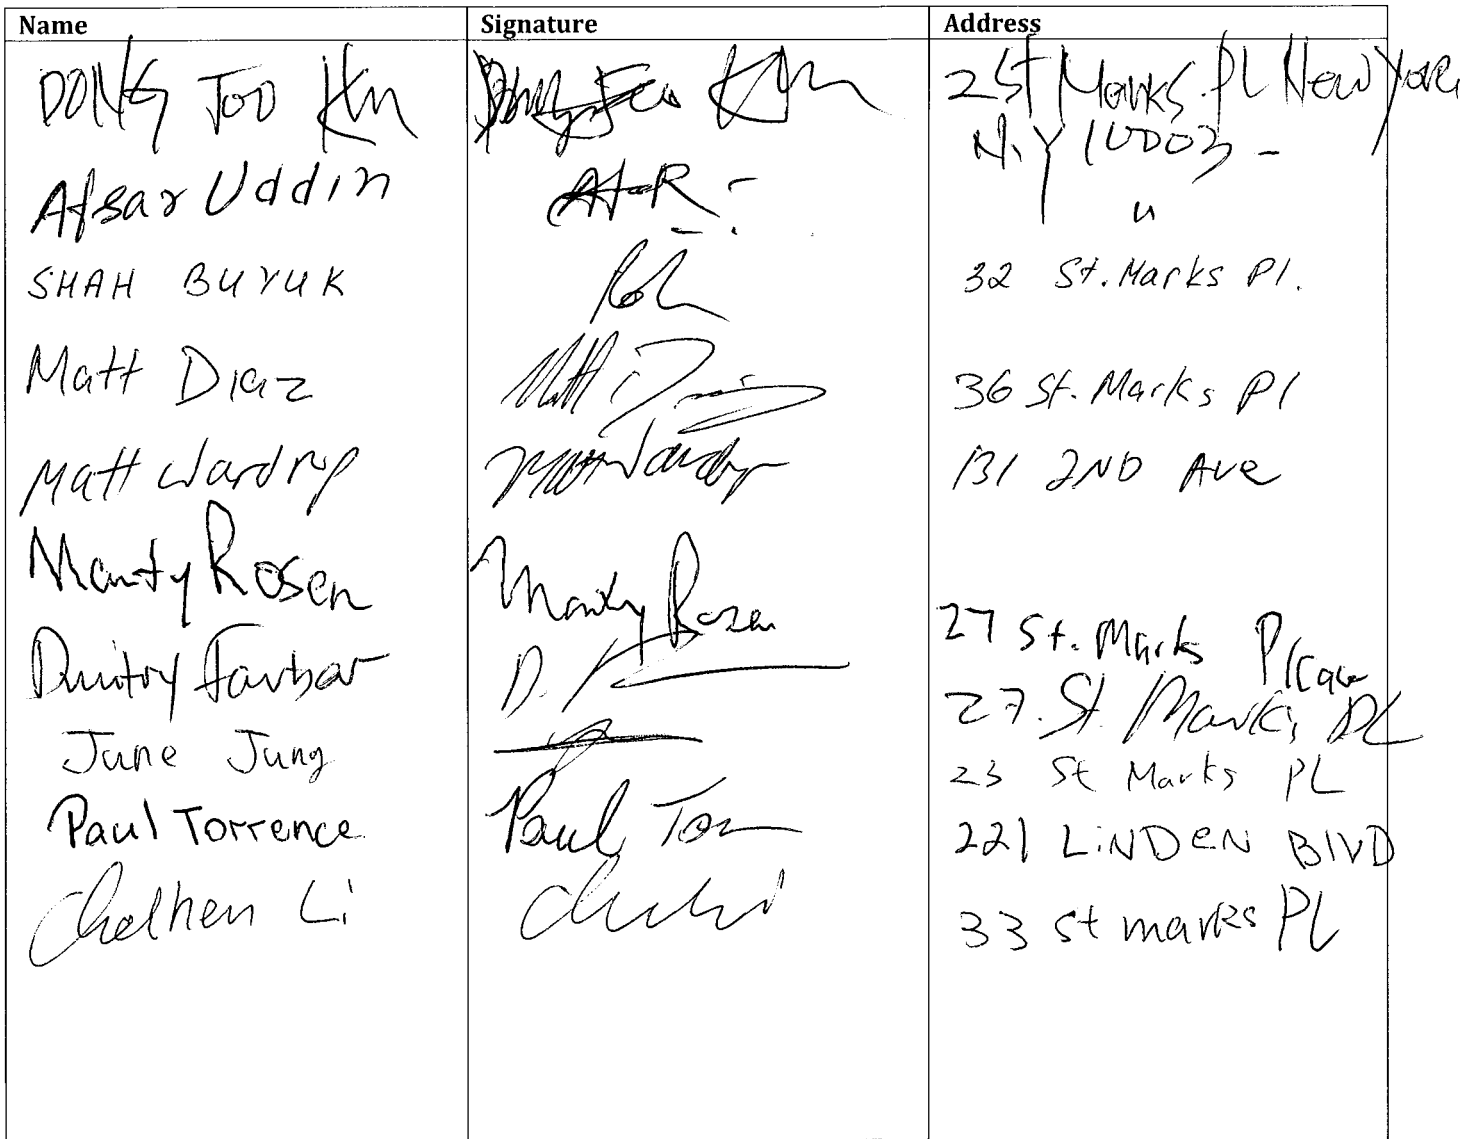 Name Signature Address
DONG JOO Kim 2 St Marks. PL New York
N.Y 10003 -
Afsar Uddin AfsaR "
SHAH BUYUK 32 St. Marks Pl.
Matt Diaz Matt Diaz 36 St. Marks Pl
Matt Wardrop Matt Wardrop 131 2ND Ave
Marty Rosen Marty Rosen 27 St. Marks Place
Dmitry Farbar D. 27. St. Marks PL
June Jung 23 St Marks PL
Paul Torrence Paul Tor 221 LiNDeN BlVD
Li 33 St marks PL